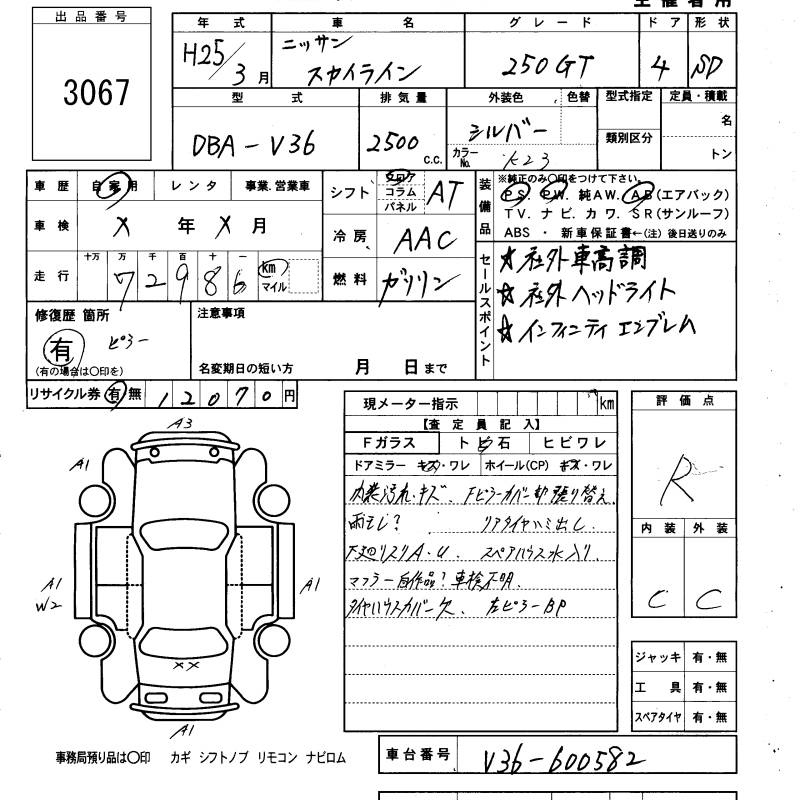 主催者用
出品番号
3067
年式 車名 グレード ドア 形状
H25/3月 ニッサン スカイライン 250GT 4 SD
型式 排気量 外装色 色替 型式指定 定員・積載
DBA-V36 2500 C.C. シルバー カラーNo. K23 類別区分 名 トン
車歴 自家用 レンタ 事業.営業車
車検 X 年 X 月
走行 十万 万 千 百 十 一
72986 km マイル
シフト フロア コラム パネル AT
冷房 AAC
燃料 ガソリン
装備品
※純正のみ〇印をつけて下さい。
PS. PW. 純AW. AB(エアバック)
TV. ナビ. カワ. SR(サンルーフ)
ABS ・ 新車保証書←(注) 後日送りのみ
セールスポイント
☆社外車高調
☆社外ヘッドライト
☆インフィニティエンブレム
修復歴 箇所
有 ピラー
(有の場合は〇印を)
注意事項
名変期日の短い方 月 日まで
リサイクル券 有 無 12070円
現メーター指示 km
【査定員記入】
Fガラス トビ石 ヒビワレ
ドアミラー キズ・ワレ ホイール(CP) キズ・ワレ
内装汚れ・キズ、Fピラーカバー部張り替え
雨もじ? リアタイヤハミ出し.
下廻リスリA・U. スペアハウス水入り.
マフラー自作品? 車検不明.
タイヤハウスカバー欠 左ピラーBP
評価点
R
内装 外装
C C
ジャッキ 有・無
工具 有・無
スペアタイヤ 有・無
A3
A1
A1
A1
W2
A1
XX
A1
事務局預り品は〇印 カギ シフトノブ リモコン ナビロム
車台番号 V36-600582